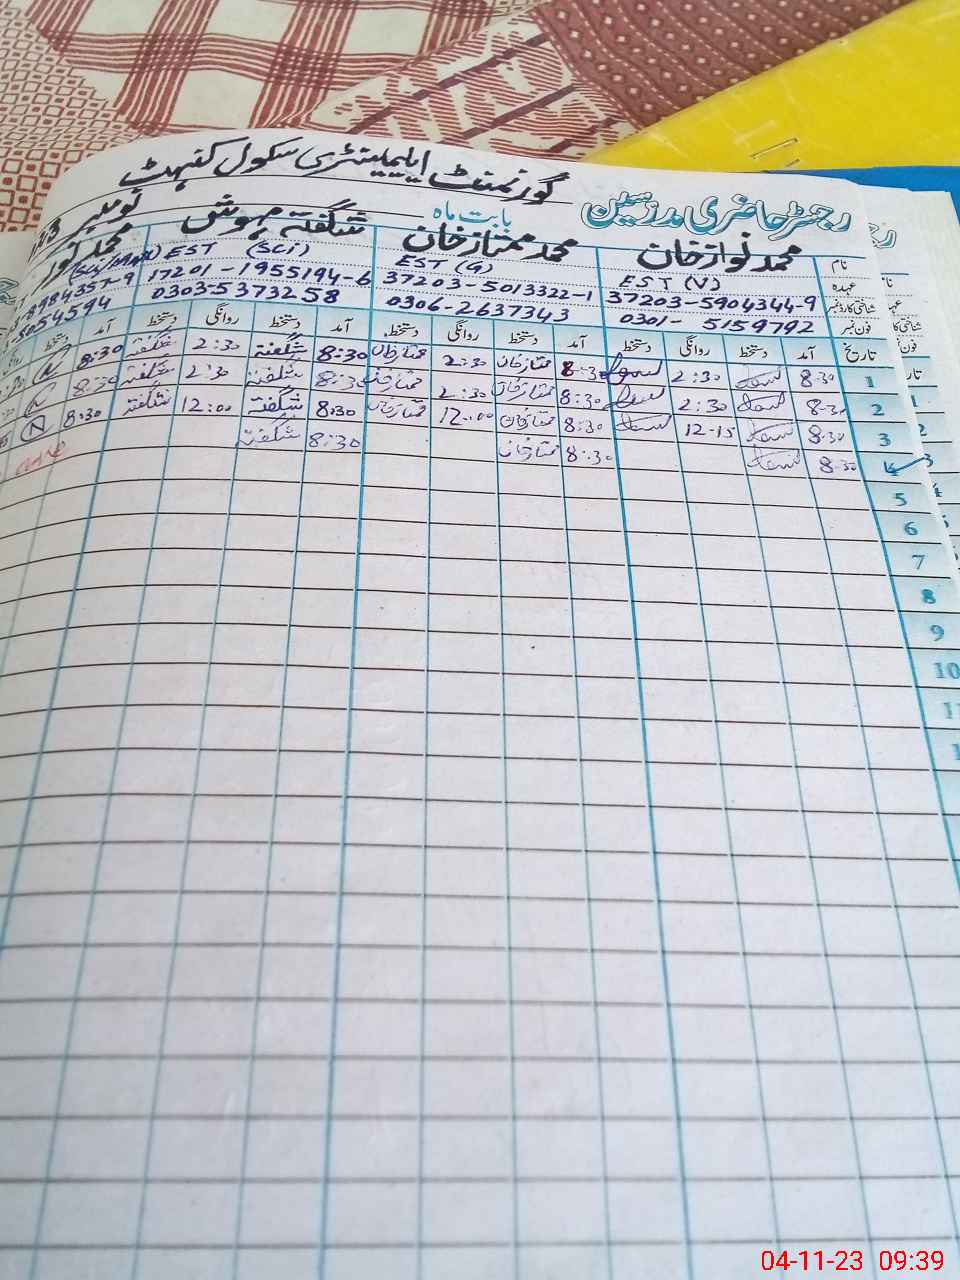 گورنمنٹ ایلیمینٹری سکول کنہٹ
رجسٹر حاضری مدرسین بابت ماہ نومبر
نام محمد نواز خان محمد ممتاز خان شگفتہ مہوش محمد
عہدہ EST (V) EST (G) EST (Sci) (Sci/Math)
شناختی کارڈ نمبر 37203-5904344-9 37203-5013322-1 17201-1955194-6 8984357-9
فون نمبر 0301-5159792 0306-2637343 0303-5373258 5054594
تاریخ آمد دستخط روانگی دستخط آمد دستخط روانگی دستخط آمد دستخط روانگی دستخط آمد دستخط
1 8:30 2:30 8:30 ممتاز خان 2:30 ممتاز خان 8:30 شگفتہ 2:30 شگفتہ 8:30 N
2 8:30 2:30 8:30 ممتاز خان 2:30 ممتاز خان 8:30 شگفتہ 2:30 شگفتہ 8:30 N
3 8:30 12-15 8:30 ممتاز خان 12:00 ممتاز خان 8:30 شگفتہ 12:00 شگفتہ 8:30 N
4 8:30 8:30 ممتاز خان 8:30 شگفتہ
5
6
7
8
9
10
11
04-11-23 09:39